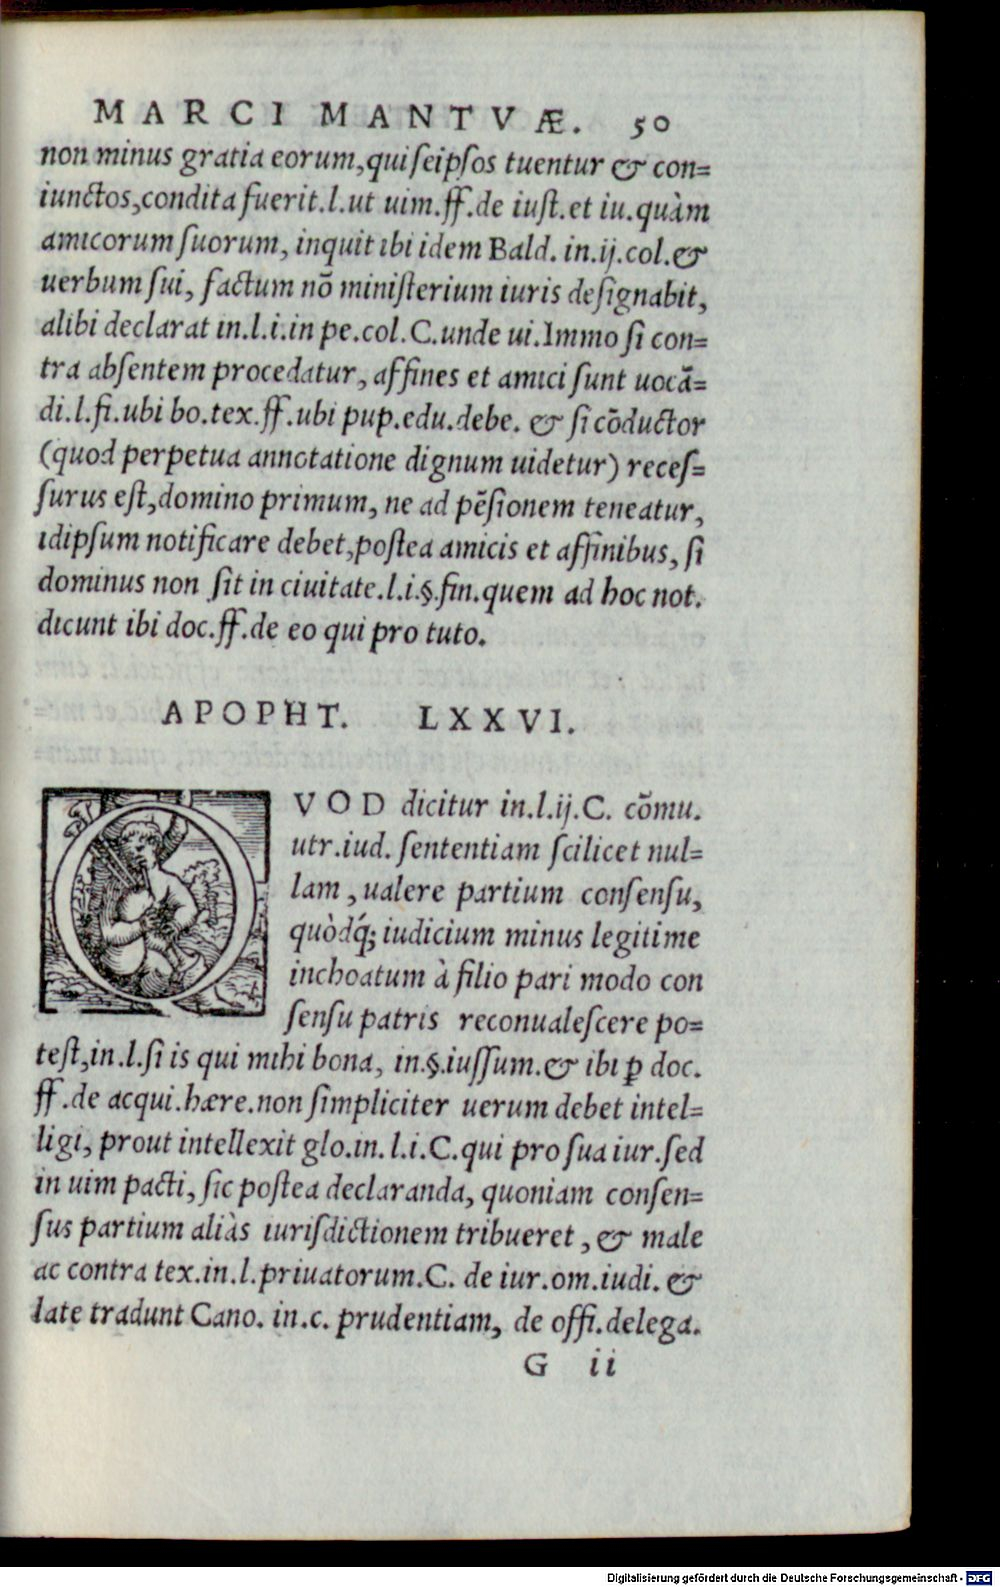 MARCI MANTVÆ. 50
non minus gratia eorum, qui seipsos tuentur & con=
iunctos, condita fuerit.l.ut uim.ff.de iust.et iu.quàm
amicorum suorum, inquit ibi idem Bald. in.ij.col.&
uerbum sui, factum nō ministerium iuris designabit,
alibi declarat in.l.i.in pe.col.C.unde ui.Immo si con=
tra absentem procedatur, affines et amici sunt uocā=
di.l.fi.ubi bo.tex.ff.ubi pup.edu.debe. & si cōductor
(quod perpetua annotatione dignum uidetur) reces=
surus est, domino primum, ne ad pēsionem teneatur,
idipsum notificare debet, postea amicis et affinibus, si
dominus non sit in ciuitate.l.i.§.fin.quem ad hoc not.
dicunt ibi doc.ff.de eo qui pro tuto.
APOPHT. LXXVI.
QVOD dicitur in.l.ij.C. cōmu.
utr.iud. sententiam scilicet nul=
lam, ualere partium consensu,
quòdq́; iudicium minus legitime
inchoatum à filio pari modo con
sensu patris reconualescere po=
test, in.l.si is qui mihi bona, in.§.iussum.& ibi ꝑ doc.
ff.de acqui.hære.non simpliciter uerum debet intel=
ligi, prout intellexit glo.in.l.i.C.qui pro sua iur.sed
in uim pacti, sic postea declaranda, quoniam consen=
sus partium aliàs iurisdictionem tribueret, & male
ac contra tex.in.l.priuatorum.C. de iur.om.iudi. &
late tradunt Cano. in.c. prudentiam, de offi.delega.
G ii
Digitalisierung gefördert durch die Deutsche Forschungsgemeinschaft - DFG